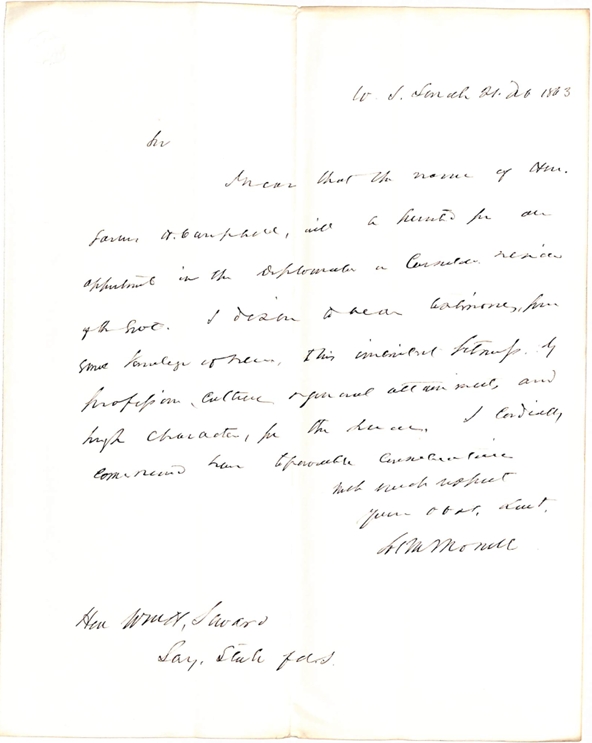 U. S. Senate 21. 1863
Sir
I hear that the name of Hon.
James H. Campbell, will be presented for an
appointment in the Diplomatic or Consular service
of the Govt. I desire to bear testimony, from
some knowledge of him, to his eminent fitness by
profession, culture, general attainments, and
high character, for the service. I cordially
commend him to favorable consideration
With much respect
Your obdt. Servt.
L M Morrill
Hon Wm H. Seward
Secy. State